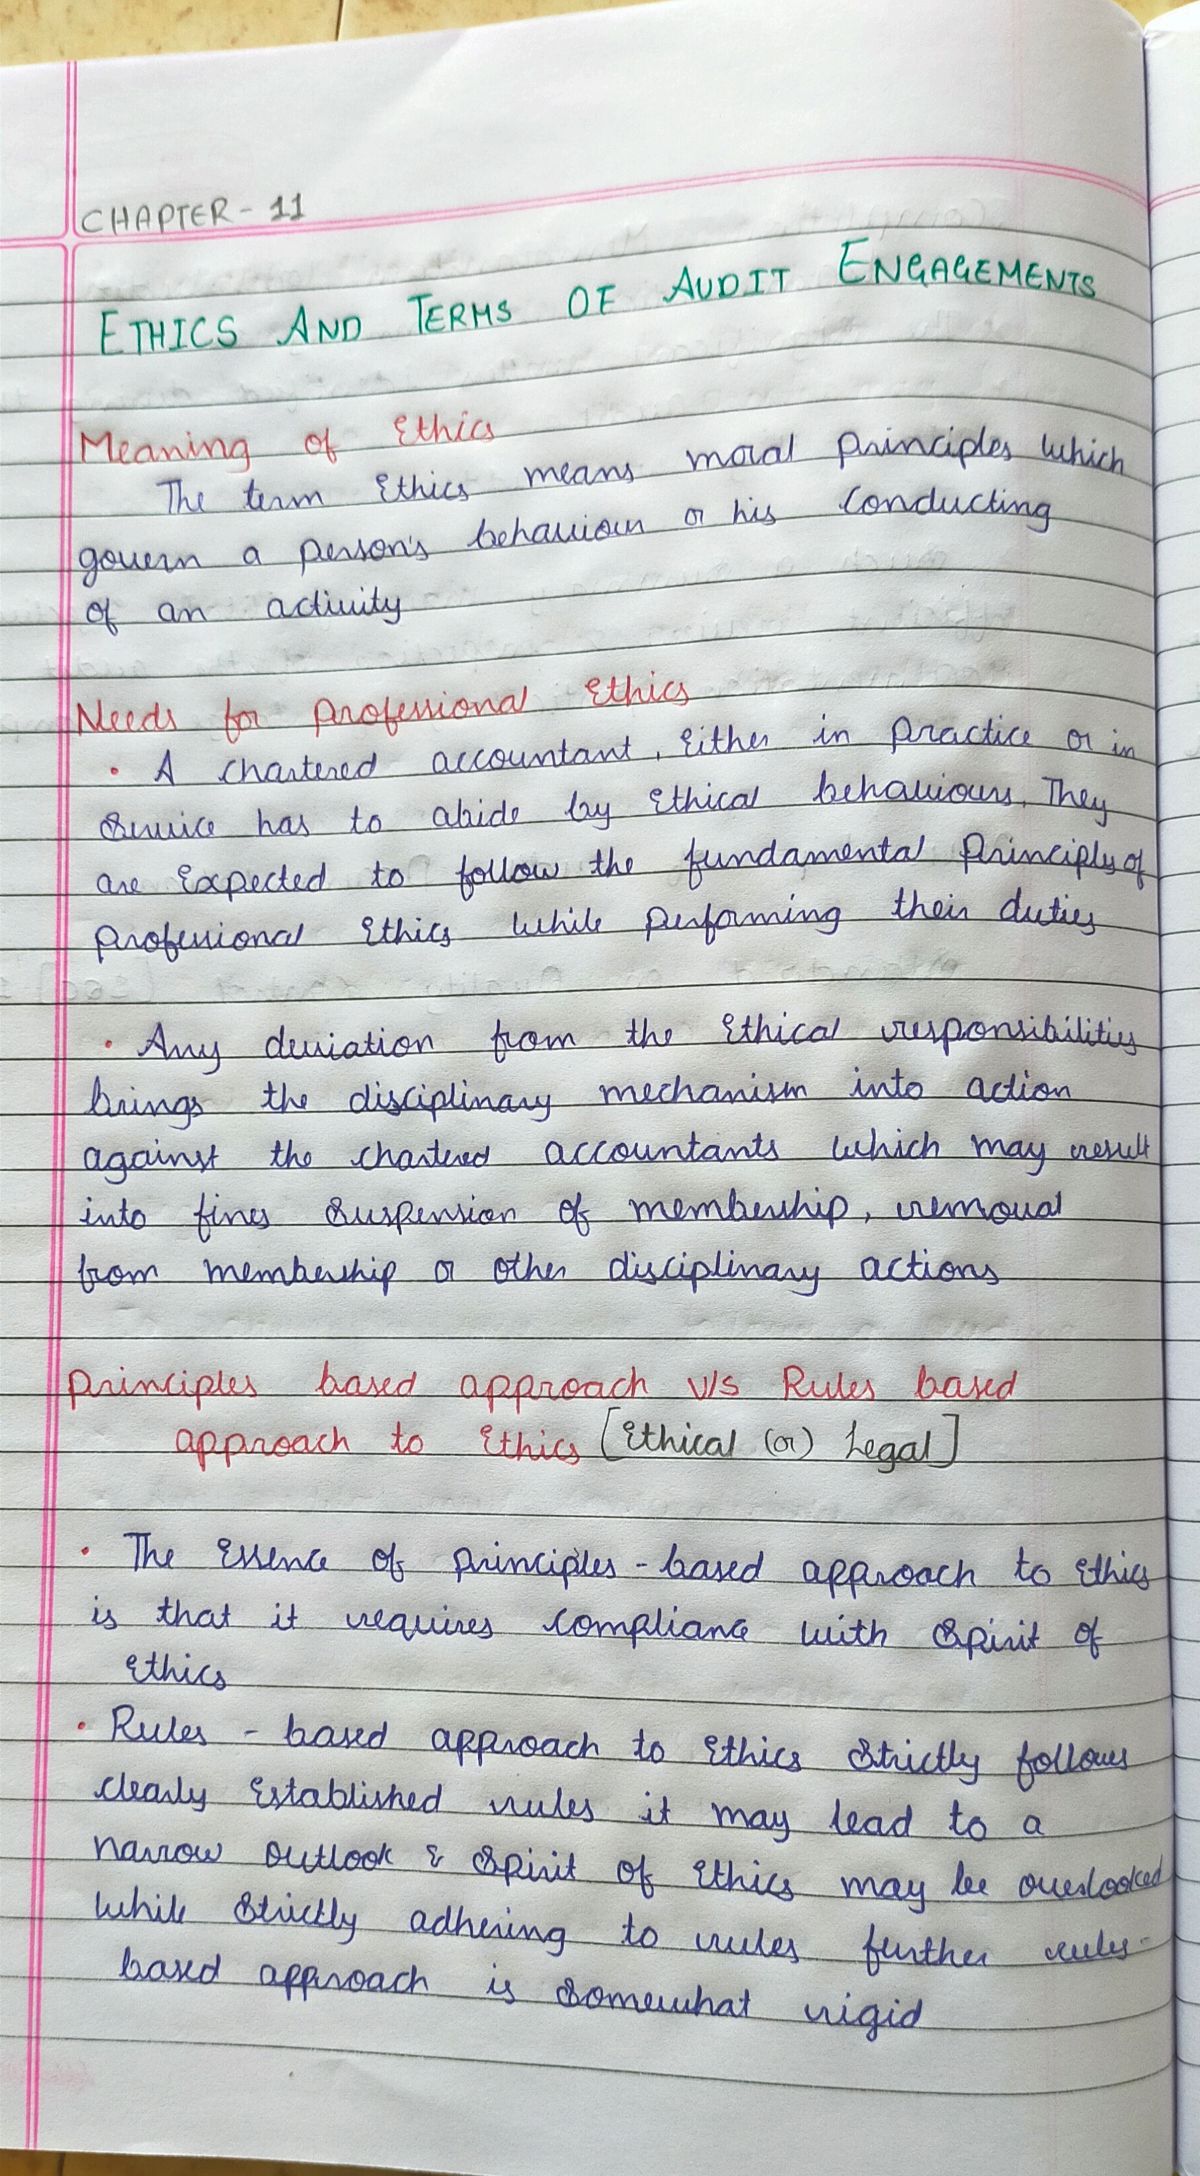 CHAPTER - 11
ETHICS AND TERMS OF AUDIT ENGAGEMENTS
Meaning of Ethics
The term Ethics means moral principles which
govern a person's behaviour or his conducting
of an activity
Needs for professional Ethics
• A chartered accountant, Either in practice or in
service has to abide by Ethical behaviours. They
are Expected to follow the fundamental principles of
professional Ethics while performing their duties
• Any deviation from the Ethical responsibilities
brings the disciplinary mechanism into action
against the chartered accountants which may result
into fines suspension of membership, removal
from membership or other disciplinary actions
principles based approach v/s Rules based
approach to Ethics [Ethical (or) Legal]
• The Essence of principles - based approach to Ethics
is that it requires compliance with spirit of
Ethics
• Rules - based approach to Ethics strictly follows
clearly Established rules it may lead to a
narrow outlook & spirit of Ethics may be overlooked
while strictly adhering to rules further rules-
based approach is somewhat rigid